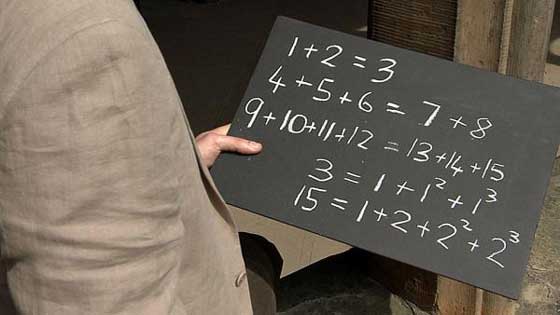 1+2=3
4+5+6=7+8
9+10+11+12=13+14+15
3=1+1²+1³
15=1+2+2²+2³